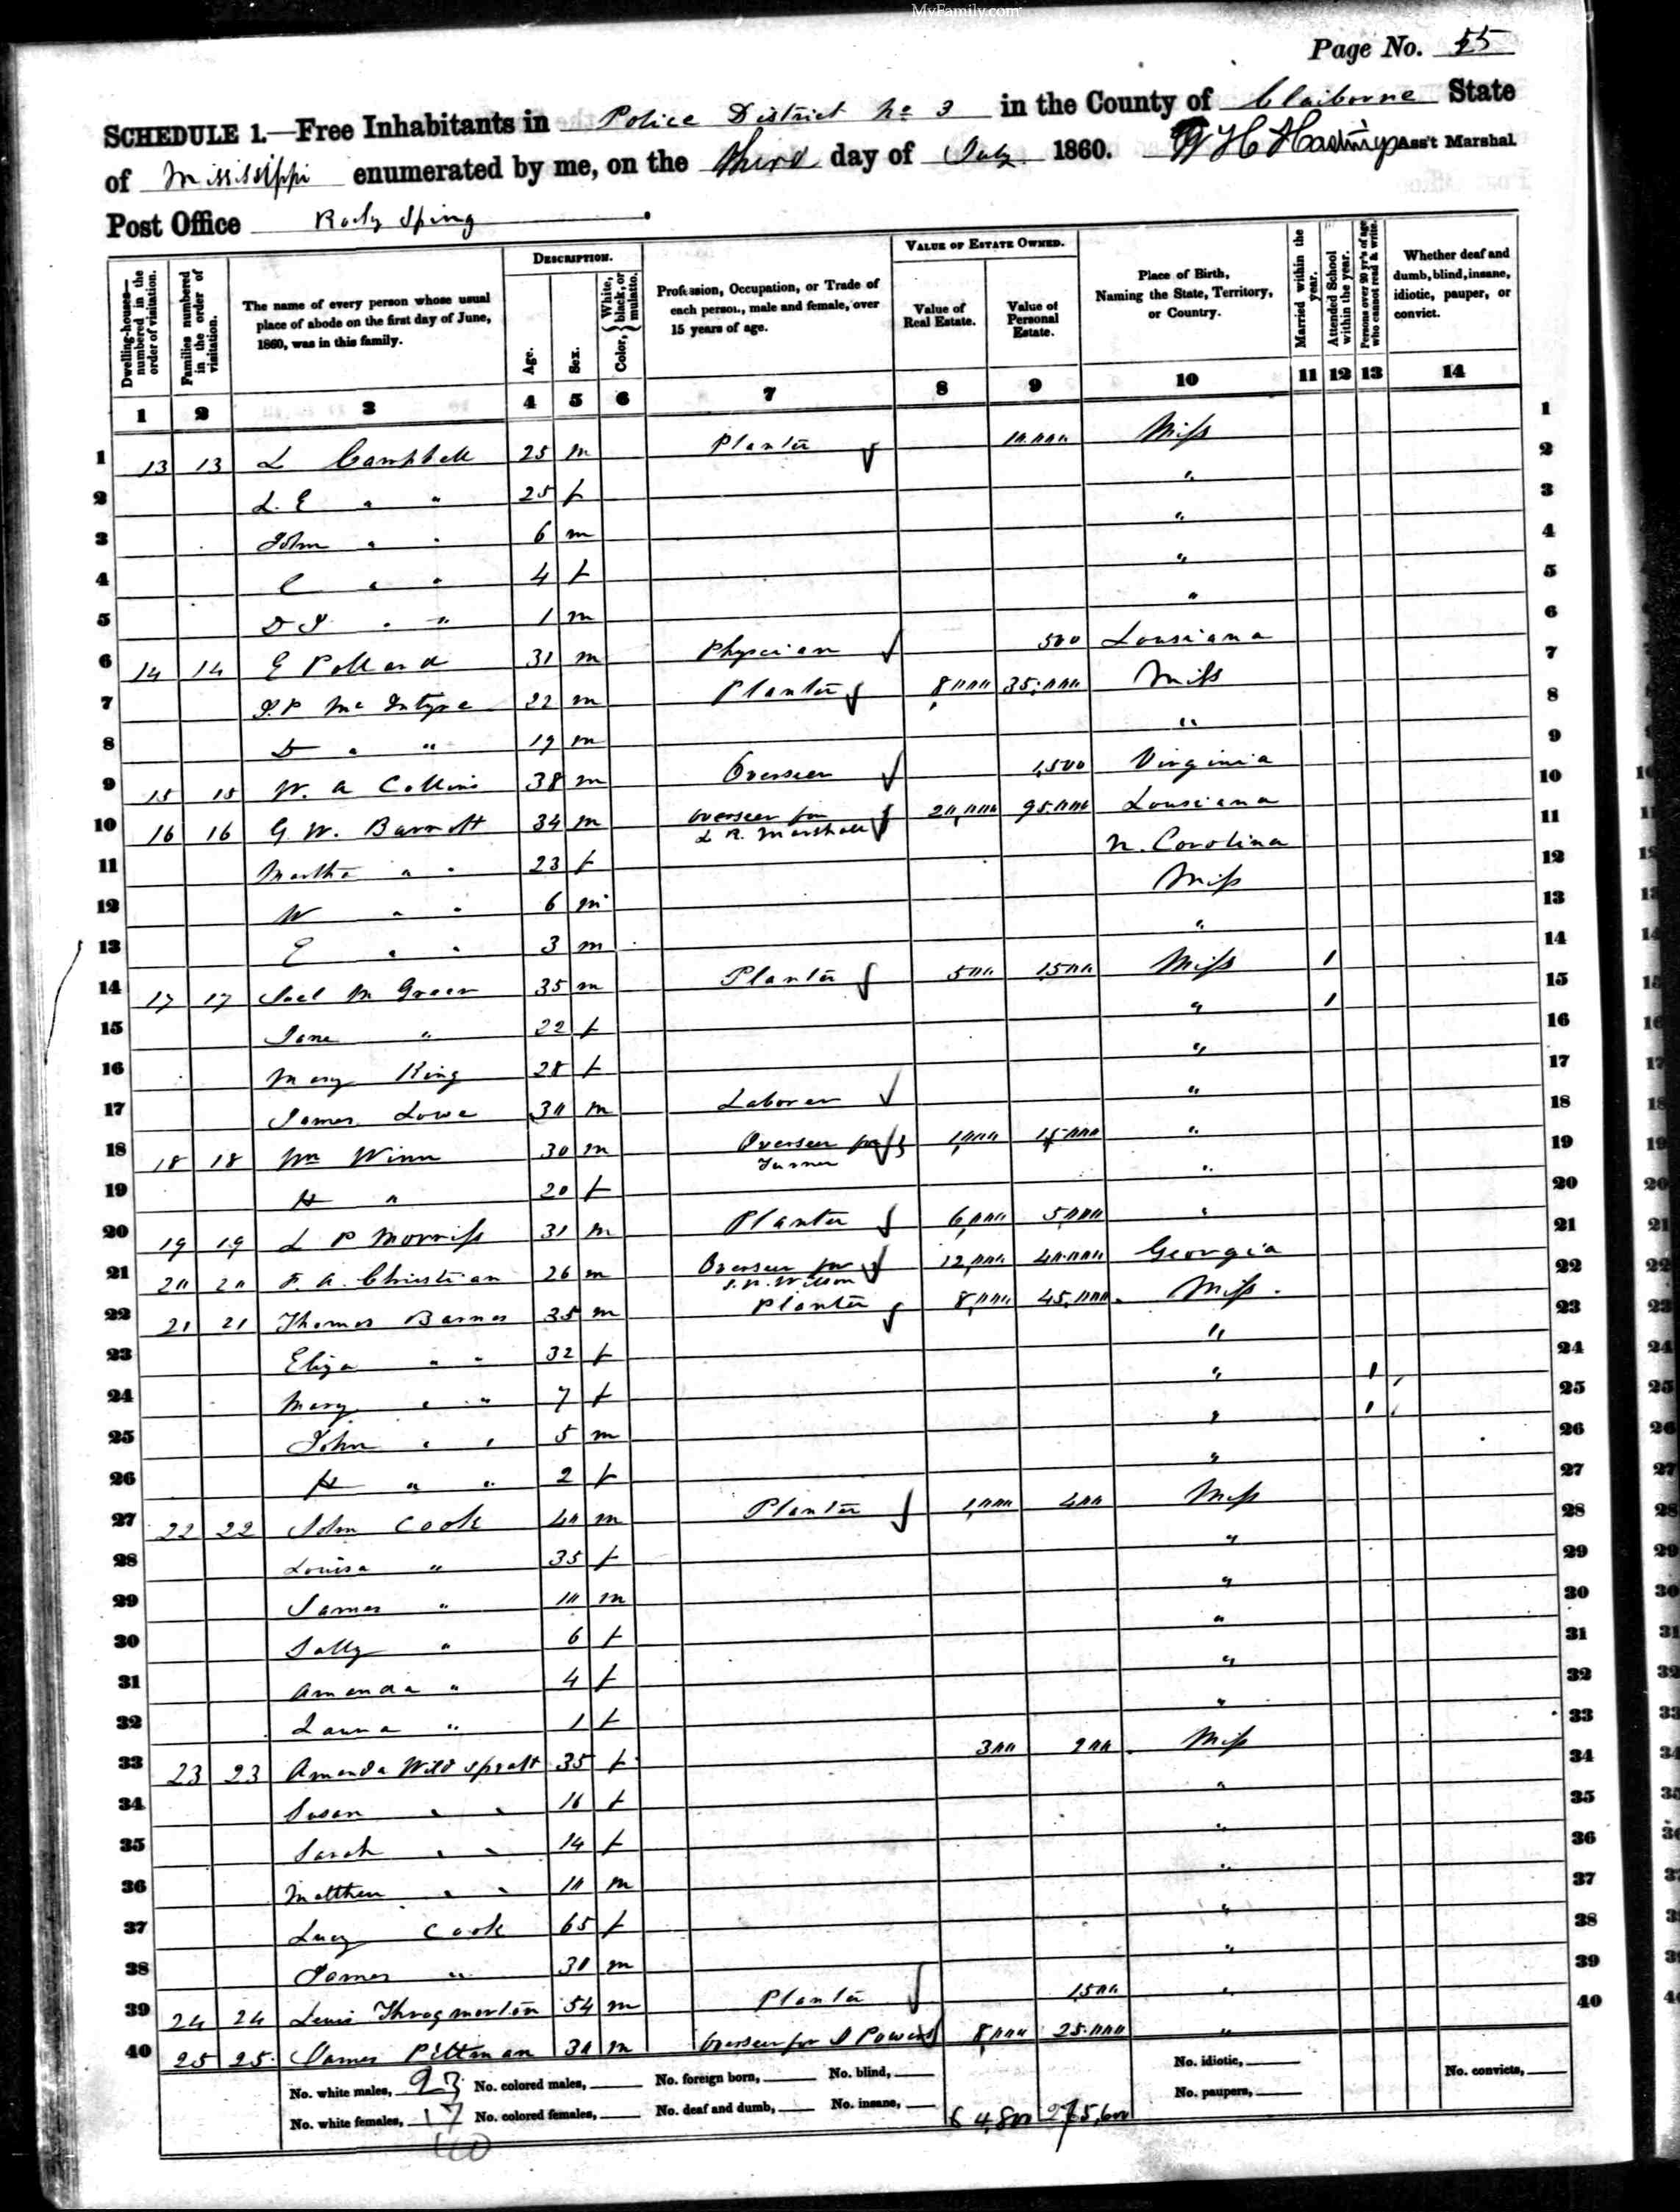 MyFamily.com
Page No. 55
SCHEDULE 1.—Free Inhabitants in Police District No 3 in the County of Claiborne State
of Mississippi enumerated by me, on the third day of July 1860. Ass't Marshal
Post Office Rocky Spring
DESCRIPTION.
VALUE OF ESTATE OWNED.
Dwelling-houses—numbered in the order of visitation.
Families numbered in the order of visitation.
The name of every person whose usual place of abode on the first day of June, 1860, was in this family.
Age.
Sex.
Color, { White, black, or mulatto.
Profession, Occupation, or Trade of each person, male and female, over 15 years of age.
Value of Real Estate.
Value of Personal Estate.
Place of Birth, Naming the State, Territory, or Country.
Married within the year.
Attended School within the year.
Persons over 20 yr's of age who cannot read & write.
Whether deaf and dumb, blind, insane, idiotic, pauper, or convict.
1 2 3 4 5 6 7 8 9 10 11 12 13 14
1 13 13 L Campbell 25 m Planter 10.000 Miss 1
2 L. E " " 25 f " 2
3 John " " 6 m " 3
4 C " " 4 f " 4
5 D J " " 1 m " 5
6 14 14 E Pollard 31 m Physician 500 Lousiana 6
7 J.P. Mc Intyre 22 m Planter 8,000 35,000 Miss 7
8 D " " 19 m " 8
9 15 15 W. A Collins 38 m Overseer 1,500 Virginia 9
10 16 16 G. W. Barrott 34 m Overseer for L R. Marshall 20,000 95000 Lousiana 10
11 Martha " " 23 f N. Carolina 11
12 W " " 6 m Miss 12
13 E " " 3 m " 13
14 17 17 Joel M Green 35 m Planter 500 1500 Miss 1 14
15 Jane " 22 f " 1 15
16 Mary King 28 f " 16
17 James Lowe 30 m Laborer " 17
18 18 18 Wm Winn 30 m Overseer for Turner 1,000 15000 " 18
19 H " 20 f " 19
20 19 19 L P Morriss 31 m Planter 6,000 5,000 " 20
21 20 20 F. A. Christian 26 m Overseer for Wilson 12,000 40.000 Georgia 21
22 21 21 Thomas Barnes 35 m Planter 8,000 45,000 Miss. 22
23 Eliza " " 32 f " 23
24 Mary " " 7 f " 1 24
25 John " " 5 m " 1 25
26 H " " 2 f " 26
27 22 22 John Cook 40 m Planter 1,000 400 Miss 27
28 Louisa " 35 f " 28
29 James " 10 m " 29
30 Sally " 6 f " 30
31 Amanda " 4 f " 31
32 Laura " 1 f " 32
33 23 23 Amanda Wild spratt 35 f 300 200 Miss 33
34 Susan " " 16 f " 34
35 Sarah " " 14 f " 35
36 Matthew " " 10 m " 36
37 Lucy Cook 65 f " 37
38 James " 30 m " 38
39 24 24 Lewis Throgmorton 54 m Planter 1,500 " 39
40 25 25 James Pittman 30 m Overseer for J Powers 8,000 25.000 " 40
No. white males, 23 No. colored males, No. foreign born, No. blind, No. idiotic, No. convicts,
No. white females, 17 No. colored females, No. deaf and dumb, No. insane, 64,800 275,600 No. paupers,
40